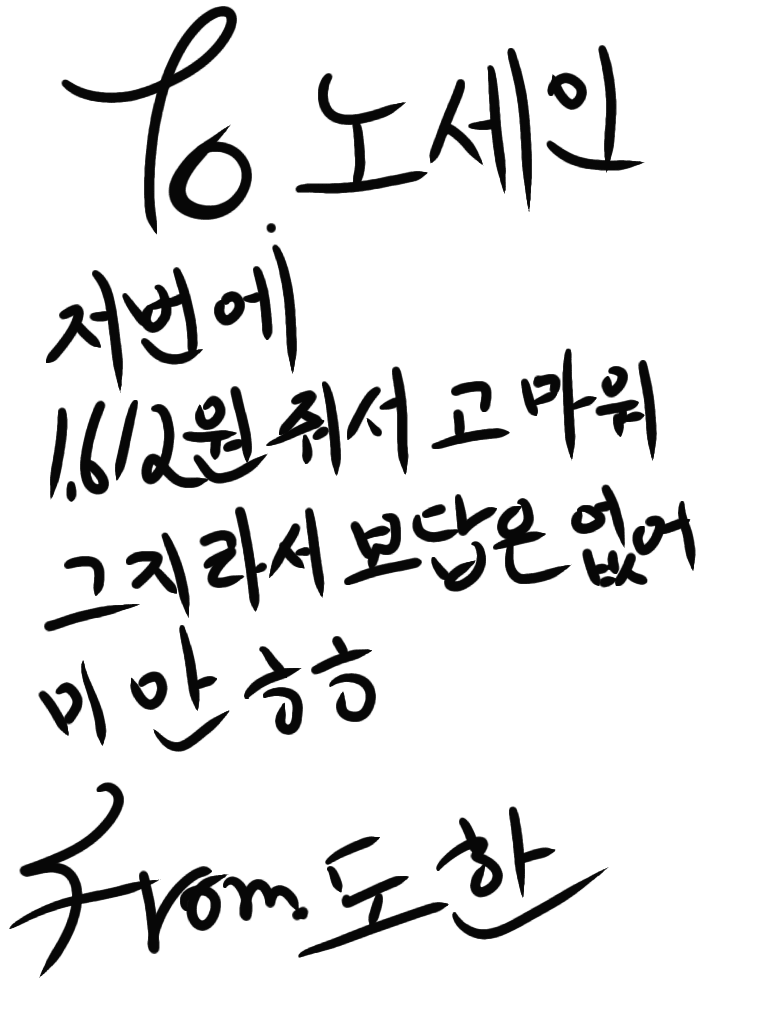 To. 노세인
저번에
1.612원 줘서 고마워
그지라서 보답은 없어
미안 ㅎㅎ
From. 도한